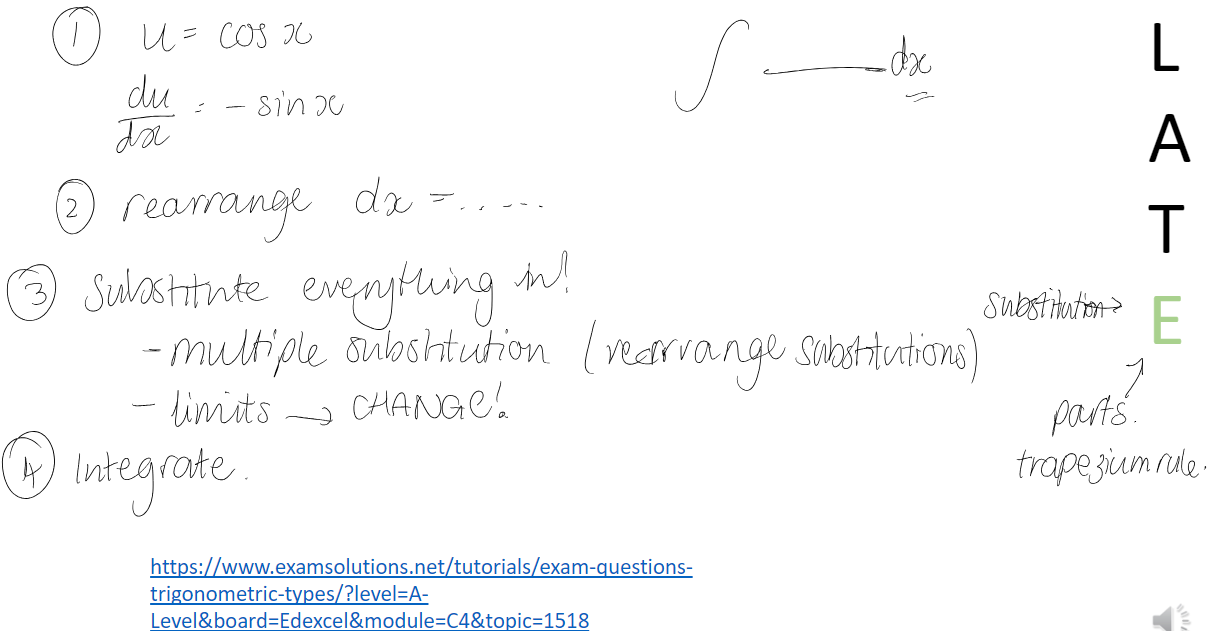 ① u = cos x
du/dx = - sin x
② rearrange dx = ......
③ Substitute everything in!
- multiple substitution (rearrange substitutions)
- limits → CHANGE!
④ Integrate.
∫ ——— dx
L
A
T
substitution→ E
parts.
trapezium rule.
https://www.examsolutions.net/tutorials/exam-questions-
trigonometric-types/?level=A-
Level&board=Edexcel&module=C4&topic=1518